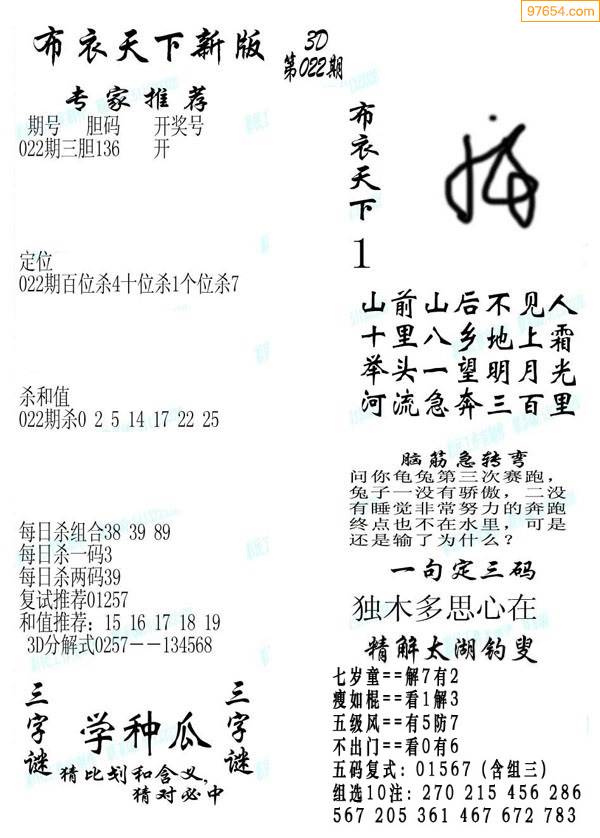 97654.com
布衣天下新版
3D
第022期
专家推荐
期号 胆码 开奖号
022期三胆136 开
定位
022期百位杀4十位杀1个位杀7
杀和值
022期杀0 2 5 14 17 22 25
每日杀组合38 39 89
每日杀一码3
每日杀两码39
复试推荐01257
和值推荐：15 16 17 18 19
3D分解式0257--134568
三字谜
学种瓜
三字谜
猜比划和含义，
猜对必中
布衣天下
1
山前山后不见人
十里八乡地上霜
举头一望明月光
河流急奔三百里
脑筋急转弯
问你龟兔第三次赛跑，
兔子一没有骄傲，二没
有睡觉非常努力的奔跑
终点也不在水里，可是
还是输了为什么？
一句定三码
独木多思心在
精解太湖钓叟
七岁童==解7有2
瘦如棍==看1解3
五级风==有5防7
不出门==看0有6
五码复式：01567（含组三）
组选10注：270 215 456 286
567 205 361 467 672 783